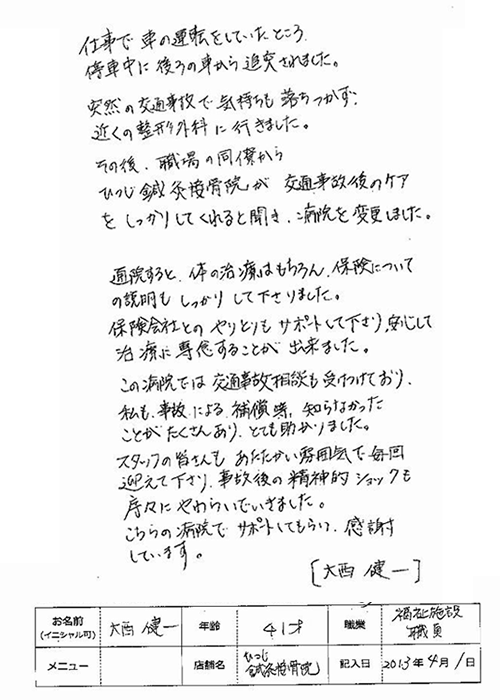 仕事で車の運転をしていたところ
停車中に後ろの車から追突されました。
突然の交通事故で気持ちも落ちつかず、
近くの整形外科に行きました。
その後、職場の同僚から
ひつじ鍼灸接骨院が交通事故後のケア
をしっかりしてくれると聞き、病院を変更しました。
通院すると、体の治療はもちろん、保険について
の説明もしっかりして下さりました。
保険会社とのやりとりもサポートして下さり、安心して
治療に専念することが出来ました。
この病院では交通事故相談も受けつけており、
私も、事故による補償等、知らなかった
ことがたくさんあり、とても助かりました。
スタッフの皆さんもあたたかい雰囲気で毎回
迎えて下さり、事故後の精神的ショックも
序々にやわらいでいきました。
こちらの病院でサポートしてもらい、感謝
しています。
[大西 健一]
お名前 (イニシャル可) 大西 健一 年齢 41才 職業 福祉施設職員
メニュー 店舗名 ひつじ鍼灸接骨院 記入日 2013年4月1日